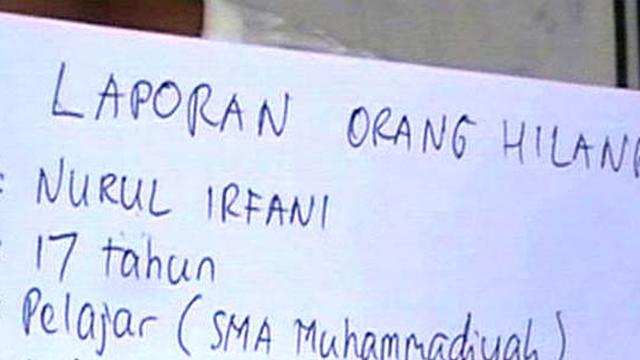 LAPORAN ORANG HILANG
: NURUL IRFANI
: 17 tahun
: Pelajar (SMA Muhammadiyah)